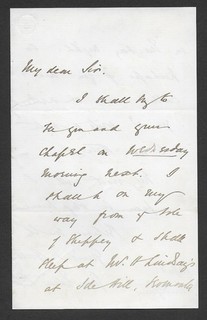 My dear Sir.
I shall try to
be you and your
Chapel on Wednesday
morning next. I
shall be on my
way from I
of Sheppey & shall
sleep at Mr. Lindsay's
at Ide Hill,